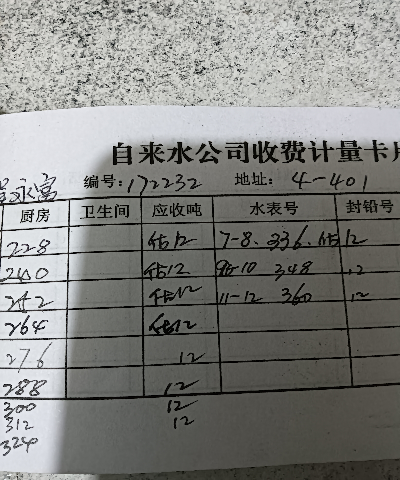 自来水公司收费计量卡片
永富 编号:172232 地址: 4-401
厨房 卫生间 应收吨 水表号 封铅号
228 估12 7-8. 336. 估12
240 估12 9-10 348 12
252 估12 11-12 360 12
264 估12
276 12
288 12
300 12
312 12
324